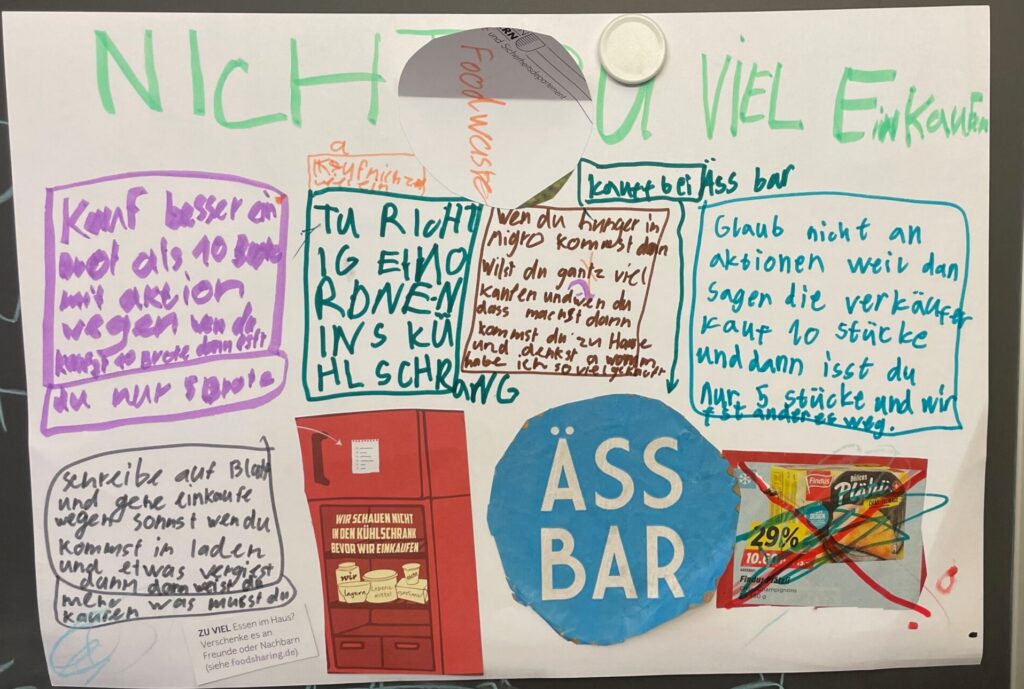 NICHT ZU VIEL EinKaufen
RN
und Sicherheitsdepartement
Foodwaiste
Kauf besser ein
brot als 10 Brote
mit aktion
wegen wen du
kaufst 10 Brote dann isst
du nur 5 Brote
a
TU RICHT
IG EINO
RDNEN
INS KÜ
HLSCHRANG
wen du hunger in
Migro kommst dan
wilst du gantz viel
kaufen und wen du
dass machst dann
kommst du zu Hause
und denkst a warum
habe ich so viel gekauft
kauft bei Äss bar
Glaub nicht an
aktionen weil dan
sagen die verkäufer
kauf 10 stücke
und dann isst du
nur 5 stücke und wir
fst anderes weg.
schreibe auf Blatt
und gehe einkaufe
wegen sonnst wen du
kommst in laden
und etwas vergisst
dann dann weist du
mehr was musst du
kaufen
ZU VIEL Essen im Haus?
Verschenke es an
Freunde oder Nachbarn
(siehe foodsharing.de).
WIR SCHAUEN NICHT
IN DEN KÜHLSCHRANK
BEVOR WIR EINKAUFEN
wir
lagern
Lebens
mittel
ÄSS
BAR
Findus
Délices
Plätzli
29%
10.
Findus Plätzli